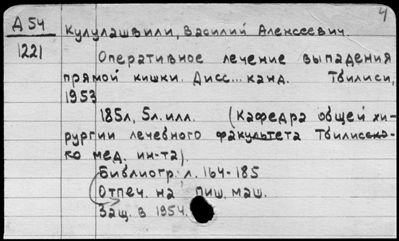 4
Д 54
1221
Кулулашвили, Василий Алексеевич.
Оперативное лечение выпадения
прямой кишки. Дисс... канд. Тбилиси,
1953
185л, 5л. илл. (Кафедра общей хи-
рургии лечебного факультета Тбилисско-
го мед. ин-та).
Библиогр. л. 164-185
Отпеч. на пиш. маш.
Защ. в 1954.